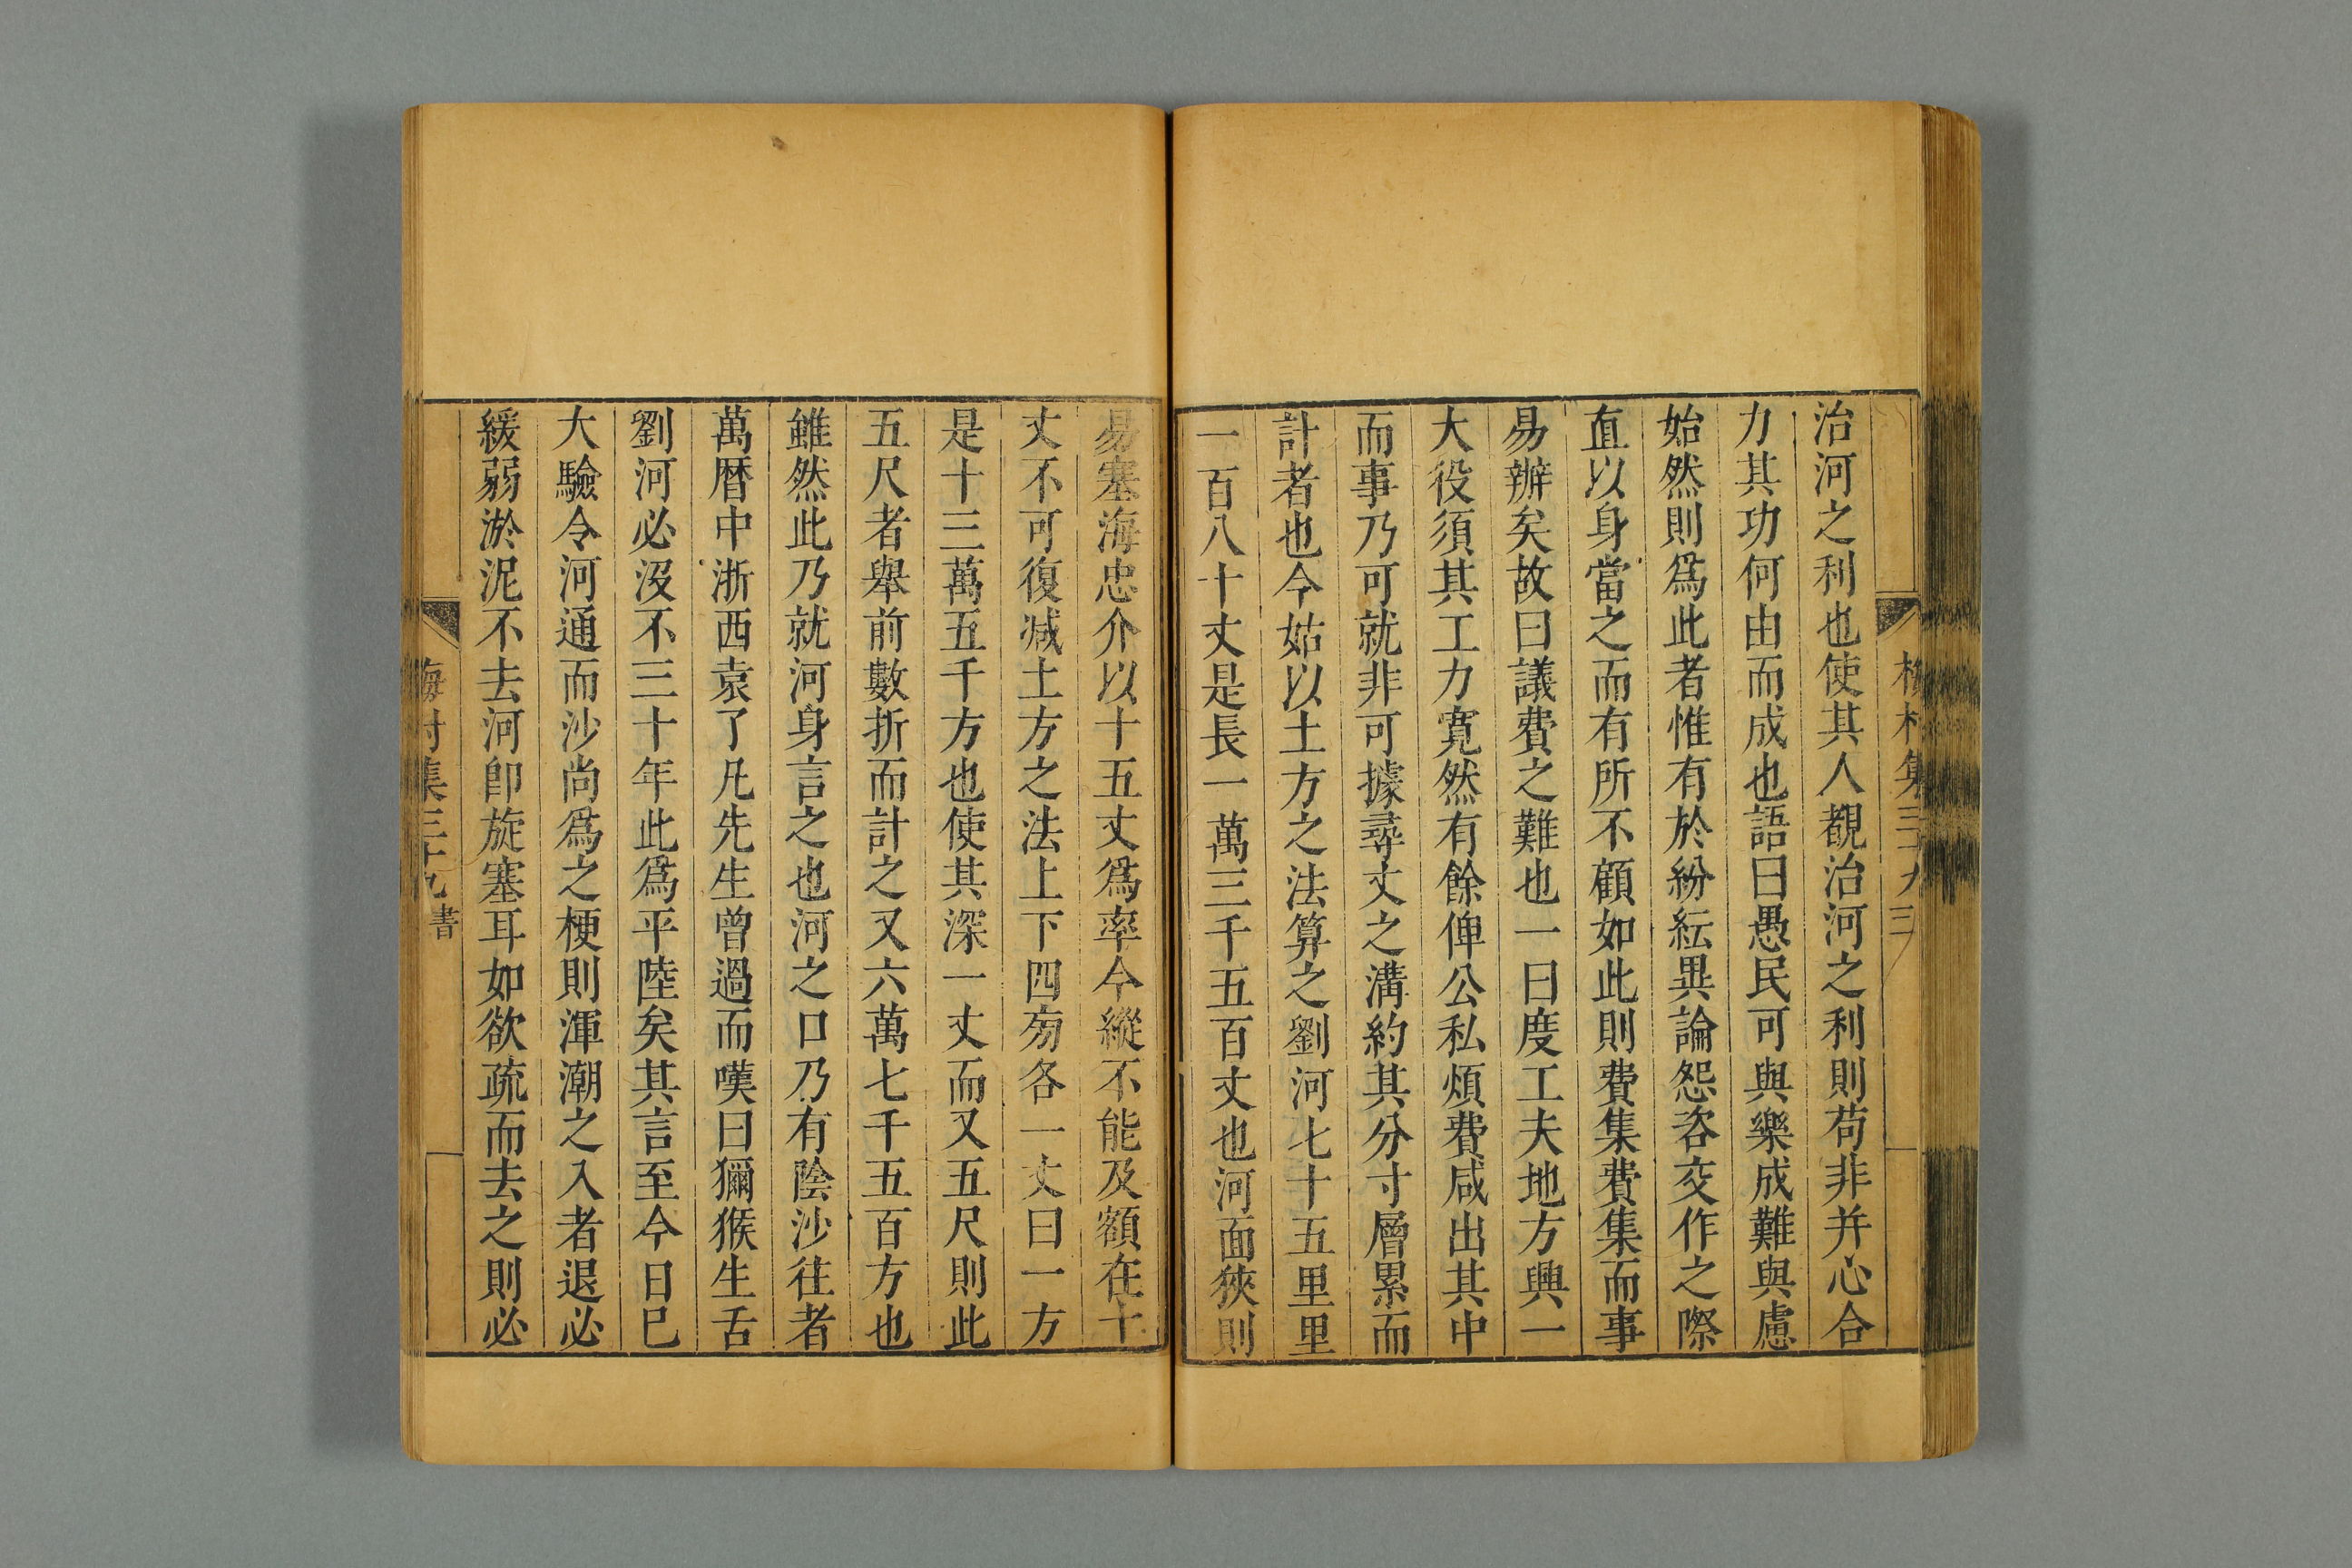 治河之利也使其人覩治河之利則苟非并心合
力其功何由而成也語曰愚民可與樂成難與慮
始然則爲此者惟有於紛紜異論怨咨交作之際
直以身當之而有所不顧如此則費集費集而事
易辦矣故曰議費之難也一曰度工夫地方興一
大役須其工力寬然有餘俾公私煩費咸出其中
而事乃可就非可據尋丈之溝約其分寸層累而
計者也今姑以土方之法算之劉河七十五里里
一百八十丈是長一萬三千五百丈也河面狹則
易塞海忠介以十五丈爲率今縱不能及額在十
丈不可復减土方之法上下四旁各一丈曰一方
是十三萬五千方也使其深一丈而又五尺則此
五尺者舉前數折而計之又六萬七千五百方也
雖然此乃就河身言之也河之口乃有陰沙往者
萬曆中浙西袁了凡先生曾過而嘆曰獮猴生舌
劉河必沒不三十年此爲平陸矣其言至今日已
大驗令河通而沙尚爲之梗則渾潮之入者退必
緩弱淤泥不去河卽旋塞耳如欲疏而去之則必
梅村集三十九 書